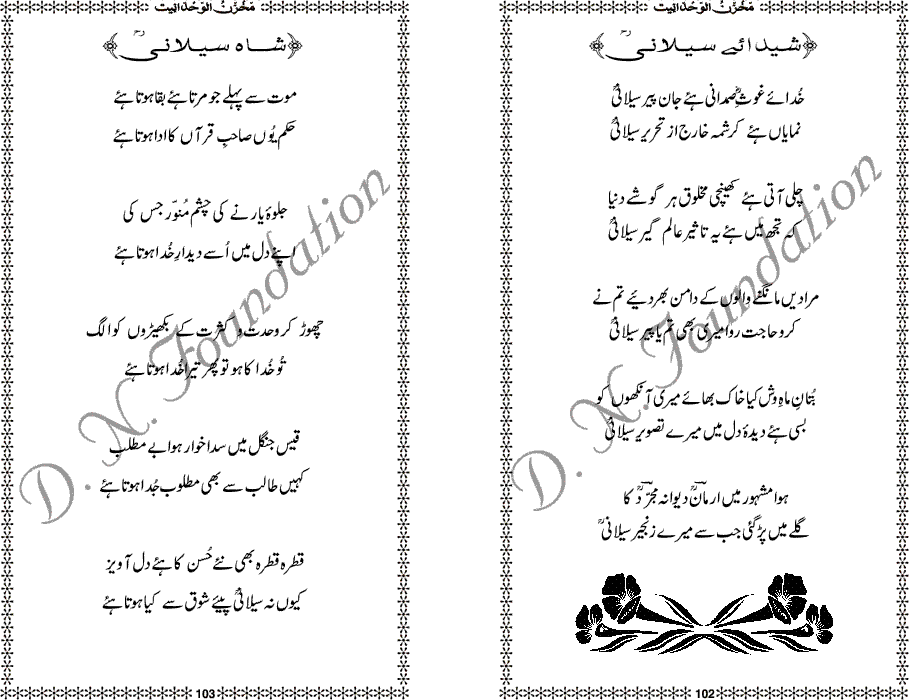 مخزن الوحدانیت
شیدائے سیلانیؒ
خُدائے غوثِ صمدانی ہے جان پیر سیلانیؒ
نمایاں ہے کرشمہ خارج از تحریر سیلانیؒ
چلی آتی ہے کھینچی مخلوق ہر گوشے دنیا
کہ تجھ میں ہے یہ تاثیر عالم گیر سیلانیؒ
مرادیں مانگنے والوں کے دامن بھر دئیے تم نے
کرو حاجت روا میری بھی تم یا پیر سیلانیؒ
بُتانِ ماہ وش کیا خاک بھائے میری آنکھوں کو
بسی ہے دیدۂ دل میں میرے تصویرِ سیلانیؒ
ہوا مشہور میں ارمانؔ دیوانہ مجرّدؔ کا
گلے میں پڑ گئی جب سے میرے زنجیر سیلانیؒ
102
مخزن الوحدانیت
شاہ سیلانیؒ
موت سے پہلے جو مرتا ہے بقا ہوتا ہے
حکم یُوں صاحبِ قرآں کا ادا ہوتا ہے
جلوۂ یار نے کی چشم مُنوّر جس کی
اپنے دل میں اُسے دیدارِ خُدا ہوتا ہے
چھوڑ کر وحدت و کثرت کے بکھیڑوں کو الگ
تُو خُدا کا ہو تو پھر تیرا خُدا ہوتا ہے
قیس جنگل میں سدا خوار ہوا بے مطلب
کہیں طالب سے بھی مطلوب جُدا ہوتا ہے
قطرہ قطرہ بھی نئے حُسن کا ہے دل آویز
کیوں نہ سیلانیؒ پیئے شوق سے کیا ہوتا ہے
103
D. N. Foundation
D. N. Foundation